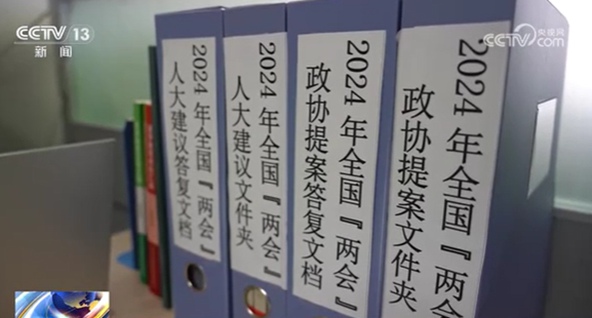 CCTV 13
新闻
央视网
CCTV.com
2024年全国『两会』
人大建议答复文档
2024年全国『两会』
人大建议文件夹
2024年全国『两会』
政协提案答复文档
2024年全国『两会』
政协提案文件夹